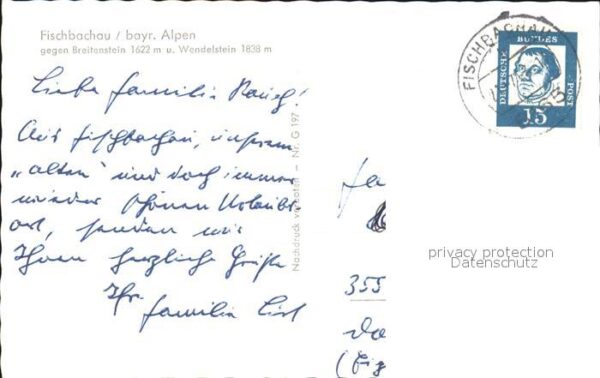 Fischbachau / bayr. Alpen
gegen Breitenstein 1622 m u. Wendelstein 1838 m
Liebe Familie Rausch!
Aus Fischbachau, unserem
„alten" und doch immer
wieder schönen Urlaubs-
ort, senden wir
Ihnen herzliche Grüße
Ihre
Familie List
Nachdruck verboten – Nr. G 197
FISCHBACHAU
DEUTSCHE BUNDESPOST
15
Fa
355
(
privacy protection
Datenschutz